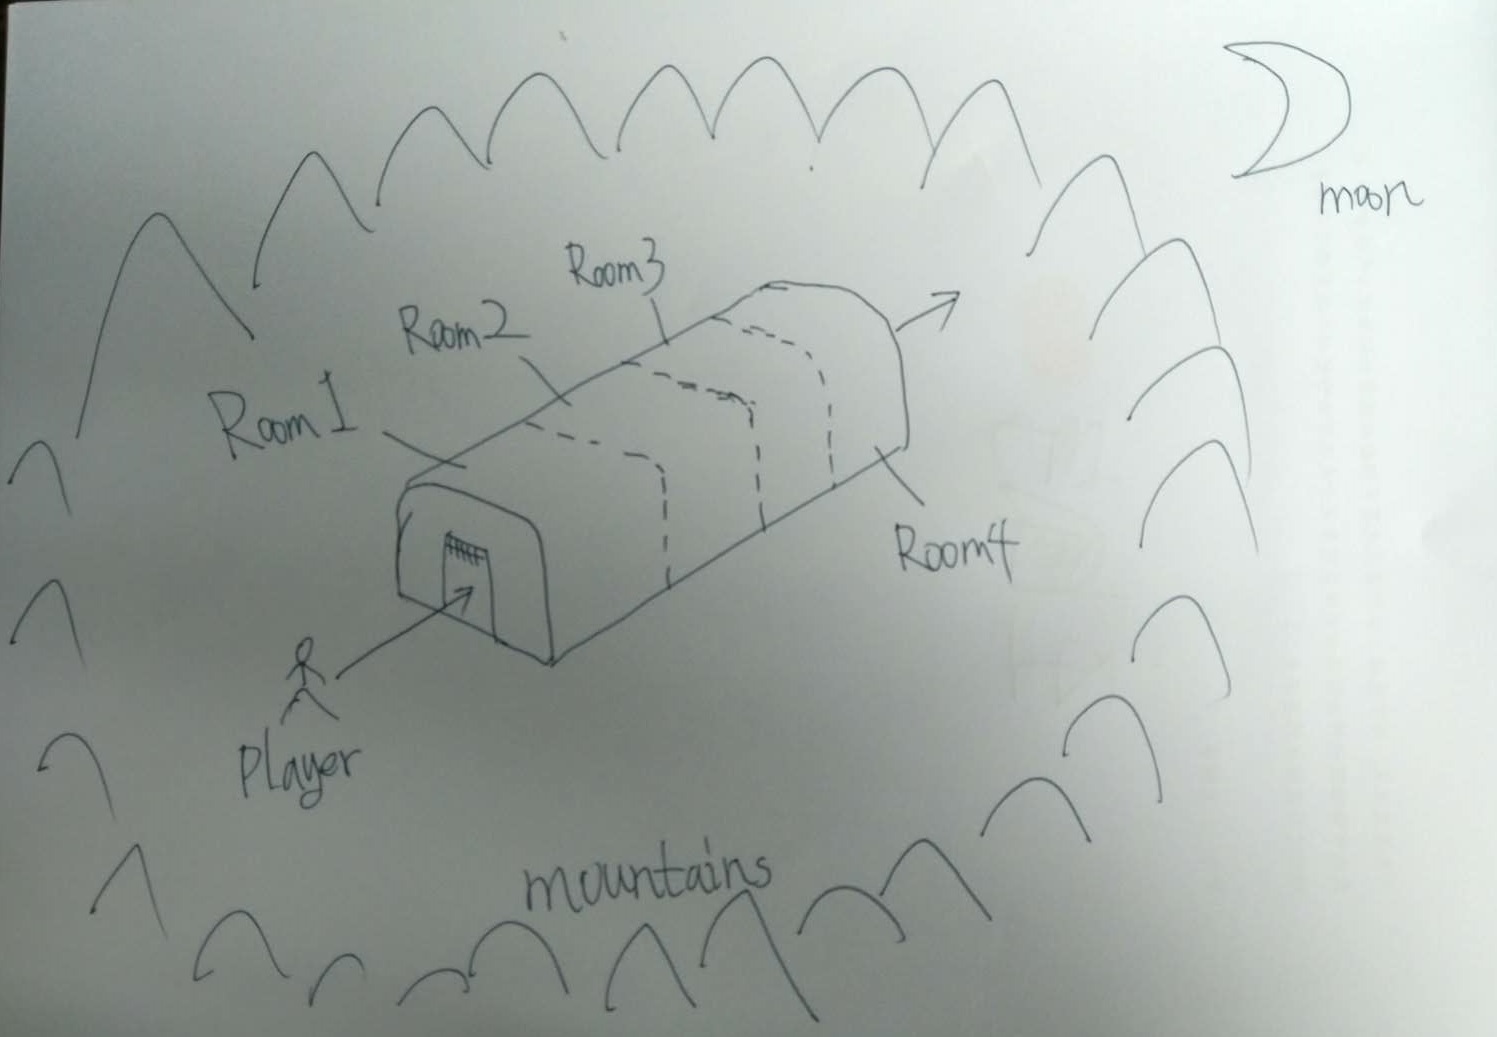 moon
Room3
Room2
Room1
Room4
Player
mountains